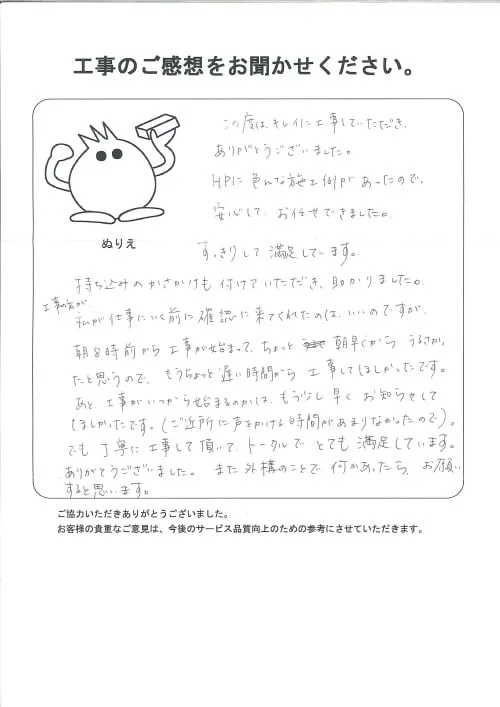 工事のご感想をお聞かせください。
この度は、キレイに工事していただき、
ありがとうございました。
HPに色んな施工例があったので、
安心して、お任せできました。
ぬりえ
すっきりして満足しています。
持ち込みのかさかけも付けていただき、助かりました。
工事の方が、
私が仕事にいく前に確認に来てくれたのは、いいのですが、
朝8時前から工事が始まって、ちょっと朝早くからうるさかっ
たと思うので、もうちょっと遅い時間から工事してほしかったです。
あと、工事がいつから始まるのかは、もう少し早くお知らせして
ほしかったです。(ご近所に声をかける時間があまりなかったので)。
でも丁寧に工事して頂いて、トータルでとても満足しています。
ありがとうございました。また外構のことで何かあったら、お願い
すると思います。
ご協力いただきありがとうございました。
お客様の貴重なご意見は、今後のサービス品質向上のための参考にさせていただきます。